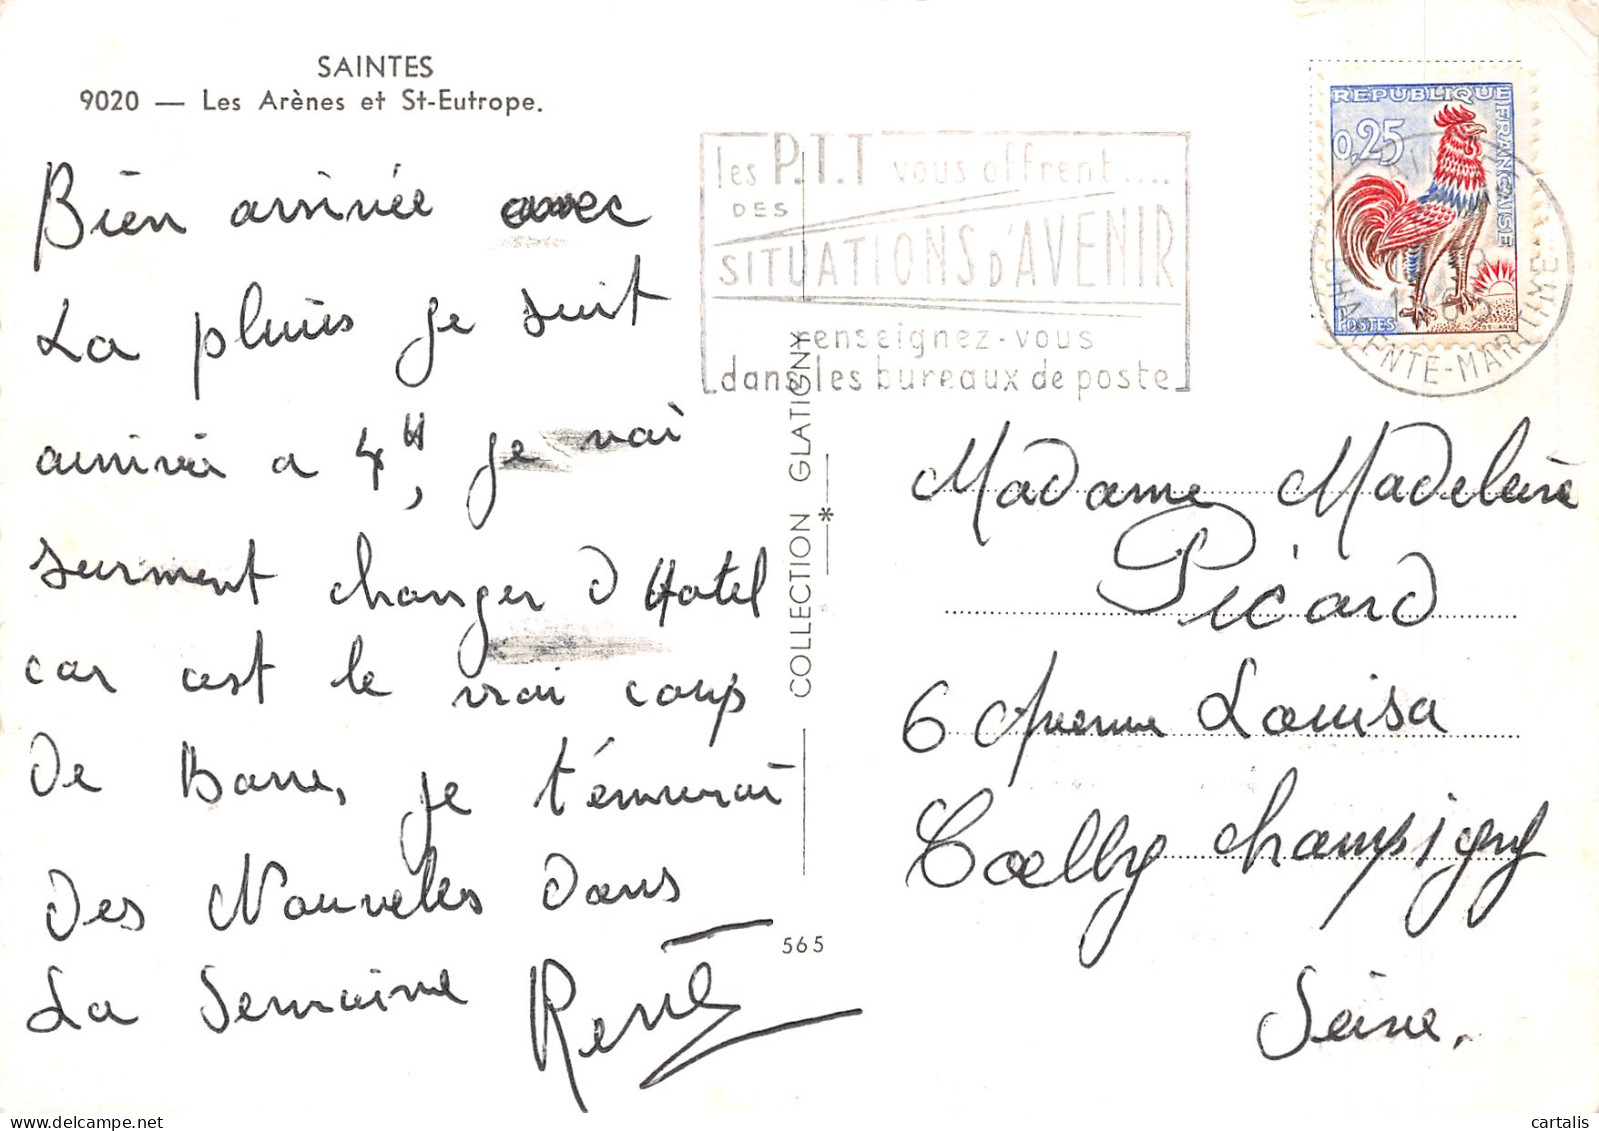 SAINTES
9020 — Les Arènes et St-Eutrope.
Bien arrivée avec
La pluies je suit
arrivée a 4H, je vai
surment changer d Hotel
car cest le vrai coup
De Barre, je t'émverai
Des Nouvelles Dans
La Semaine
René
les P.T.T vous offrent....
DES
SITUATIONS D'AVENIR
renseignez-vous
dans les bureaux de poste
REPUBLIQUE FRANÇAISE
0,25
POSTES
CHARENTE-MARITIME
COLLECTION GLATIGNY
*
565
Madame Madeleine
Picard
6 Avenue Louisa
Coelly Champigny
Seine.
cartalis